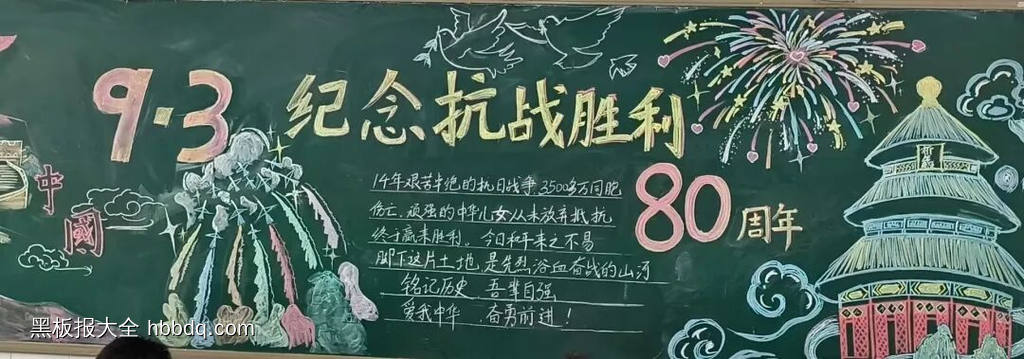 9·3 纪念抗战胜利
80周年
中國
14年艰苦卓绝的抗日战争3500多万同胞
伤亡、顽强的中华儿女从未放弃抵抗
终于赢来胜利。今日和平来之不易
脚下这片土地是先烈浴血奋战的山河
铭记历史、吾辈自强
爱我中华、奋勇前进！
黑板报大全 hbbdq.com